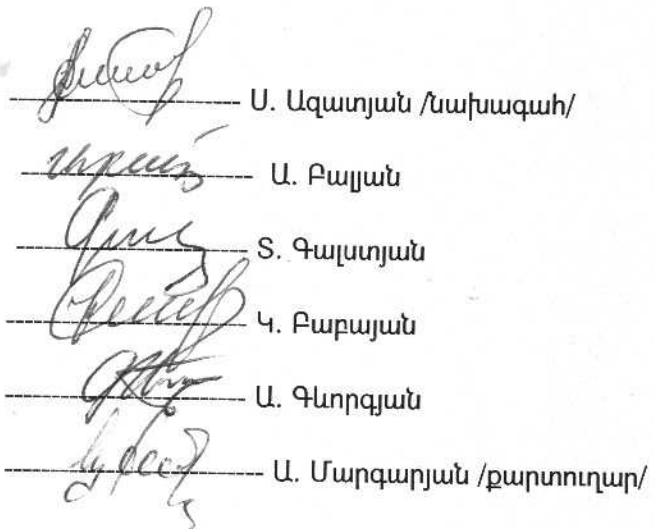 Ս. Ազատյան /նախագահ/
Ա. Բալյան
Տ. Գալստյան
Կ. Բաբայան
Ա. Գևորգյան
Ա. Մարգարյան /քարտուղար/